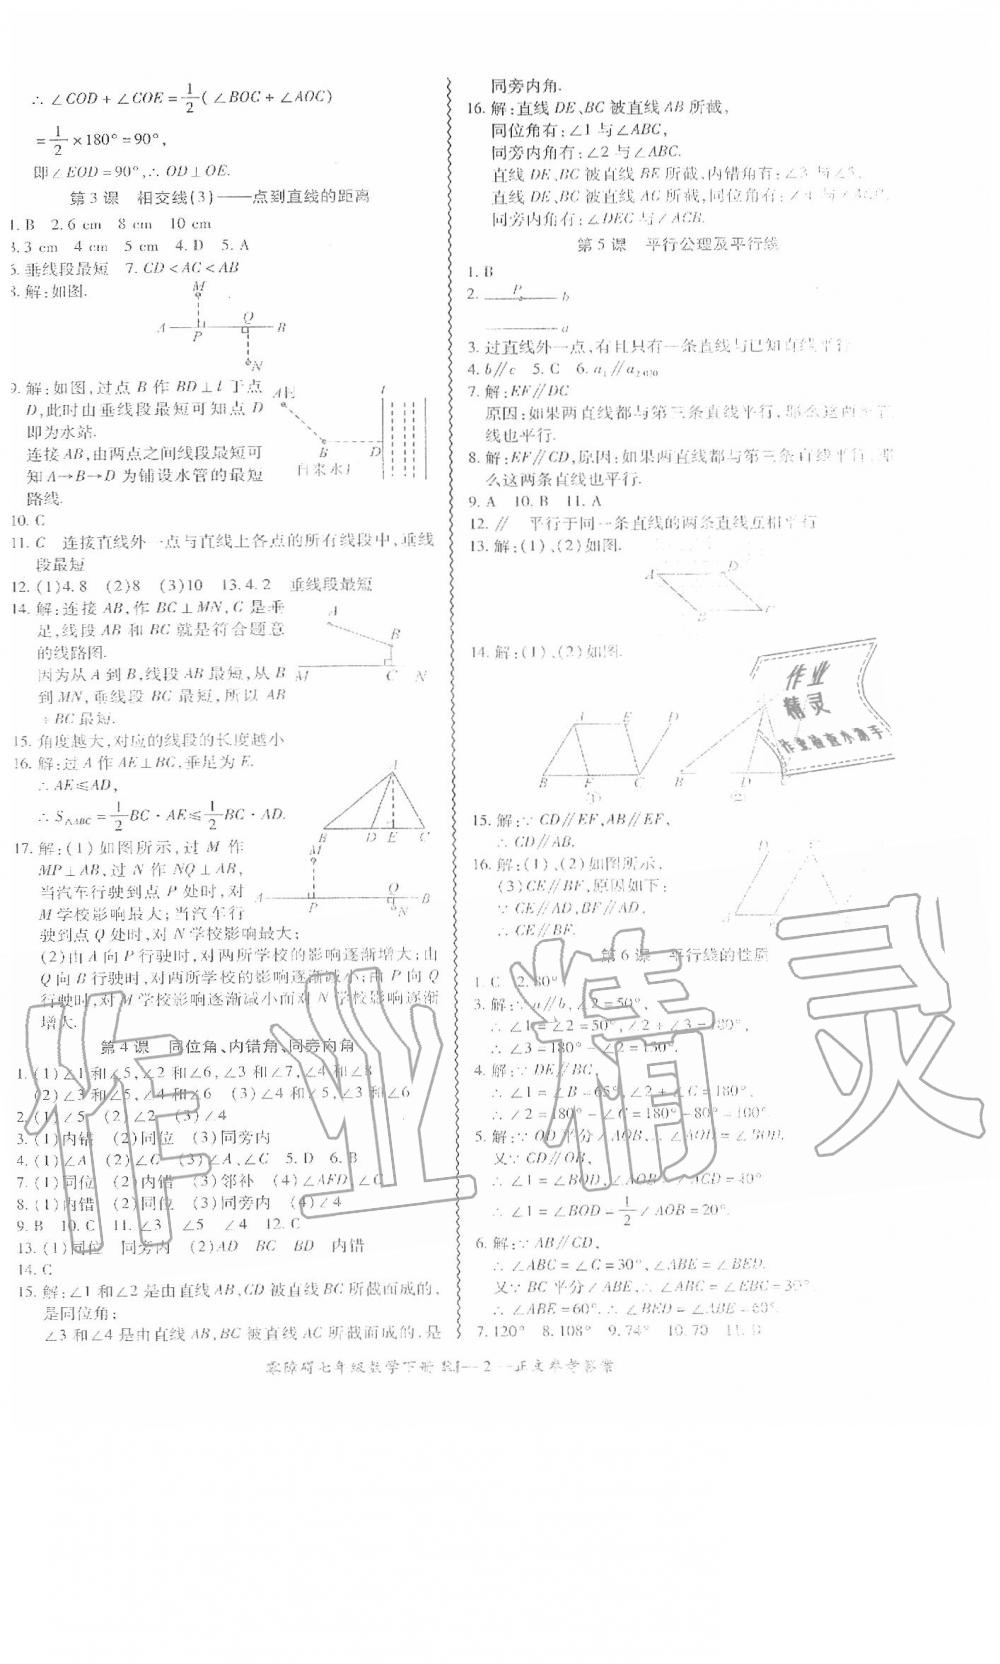 ∴∠COD+∠COE=1/2(∠BOC+∠AOC)
=1/2×180°=90°,
即∠EOD=90°,∴OD⊥OE.
第3课 相交线(3)——点到直线的距离
1.B 2.6 cm 8 cm 10 cm
3.3 cm 4 cm 5 cm 4.D 5.A
6.垂线段最短 7.CD<AC<AB
8.解:如图.
M
A P Q B
N
9.解:如图,过点B作BD⊥l于点
D,此时由垂线段最短可知点D
即为水站.
连接AB,由两点之间线段最短可
知A→B→D为铺设水管的最短
路线.
B D
10.C
11.C 连接直线外一点与直线上各点的所有线段中,垂线
段最短
12.(1)4.8 (2)8 (3)10 13.4.2 垂线段最短
14.解:连接AB,作BC⊥MN,C是垂
足,线段AB和BC就是符合题意
的线路图.
因为从A到B,线段AB最短,从B
到MN,垂线段BC最短,所以AB
+BC最短.
A
B
M C N
15.角度越大,对应的线段的长度越小
16.解:过A作AE⊥BC,垂足为E.
∴AE≤AD,
∴S△ABC=1/2BC·AE≤1/2BC·AD.
A
B D E C
17.解:(1)如图所示,过M作
MP⊥AB,过N作NQ⊥AB,
当汽车行驶到点P处时,对
M学校影响最大;当汽车行
驶到点Q处时,对N学校影响最大;
(2)由A向P行驶时,对两所学校的影响逐渐增大;由
Q向B行驶时,对两所学校的影响逐渐减小;由P向Q
行驶时,对M学校影响逐渐减小而对N学校影响逐渐
增大.
M
A P Q B
N
第4课 同位角、内错角、同旁内角
1.(1)∠1和∠5,∠2和∠6,∠3和∠7,∠4和∠8
(2)∠3和∠5,∠4和∠6 (3)∠4和∠5,∠3和∠6
2.(1)∠5 (2)∠2 (3)∠4
3.(1)内错 (2)同位 (3)同旁内
4.(1)∠A (2)∠C (3)∠A,∠C 5.D 6.B
7.(1)同位 (2)内错 (3)邻补 (4)∠AFD,∠C
8.(1)内错 (2)同位 (3)同旁内 (4)∠4
9.B 10.C 11.∠3 ∠5 ∠4 12.C
13.(1)同位 同旁内 (2)AD BC BD 内错
14.C
15.解:∠1和∠2是由直线AB,CD被直线BC所截而成的,
是同位角;
∠3和∠4是由直线AB,BC被直线AC所截而成的,是
同旁内角.
16.解:直线DE,BC被直线AB所截,
同位角有:∠1与∠ABC,
同旁内角有:∠2与∠ABC.
直线DE,BC被直线BE所截,内错角有:∠3与∠5.
直线DE,BC被直线AC所截,同位角有:∠4与∠ACB,
同旁内角有:∠DEC与∠ACB.
第5课 平行公理及平行线
1.B
2. P b
a
3.过直线外一点,有且只有一条直线与已知直线平行
4.b∥c 5.C 6.a₁∥a₂₀₂₀
7.解:EF∥DC
原因:如果两直线都与第三条直线平行,那么这两条直
线也平行.
8.解:EF∥CD,原因:如果两直线都与第三条直线平行,那
么这两条直线也平行.
9.A 10.B 11.A
12.∥ 平行于同一条直线的两条直线互相平行
13.解:(1)、(2)如图.
A D
B
14.解:(1)、(2)如图.
A E D
B F C
①
B D C
②
15.解:∵CD∥EF,AB∥EF,
∴CD∥AB.
16.解:(1)、(2)如图所示,
(3)CE∥BF,原因如下:
∵CE∥AD,BF∥AD,
∴CE∥BF.
第6课 平行线的性质
1.C 2.80°
3.解:∵a∥b,∠2=50°,
∴∠1=∠2=50°,∠2+∠3=180°,
∴∠3=180°-∠2=130°.
4.解:∵DE∥BC,
∴∠1=∠B=65°,∠2+∠C=180°,
∴∠2=180°-∠C=180°-80°=100°.
5.解:∵OD平分∠AOB,∴∠AOD=∠BOD.
又∵CD∥OB,
∴∠1=∠BOD,∠AOB=∠ACD=40°
∴∠1=∠BOD=1/2∠AOB=20°.
6.解:∵AB∥CD,
∴∠ABC=∠C=30°,∠ABE=∠BED.
又∵BC平分∠ABE,∴∠ABC=∠EBC=30°
∴∠ABE=60°,∴∠BED=∠ABE=60°.
7.120° 8.108° 9.74° 10.70 11.
零障碍七年级数学下册RJ—2—正文参考答案
作业
精灵
作业检查小助手
作业精灵